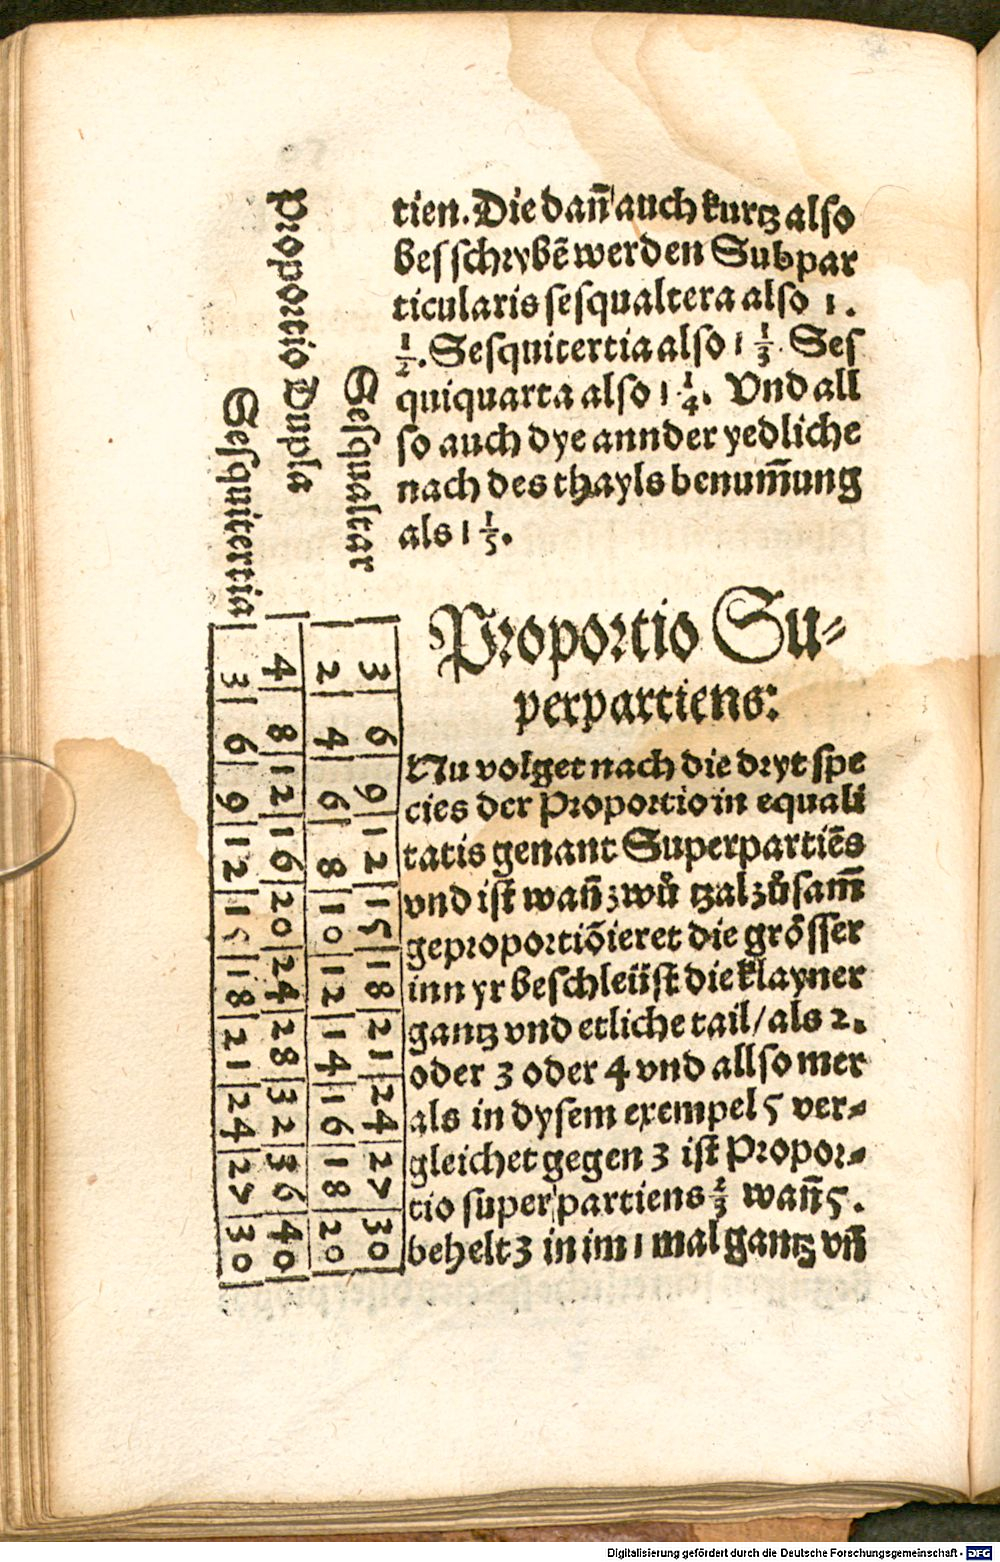 tien. Die dañ auch kurtz also
besschrybē werden Subpar
ticularis sesqualtera also 1.
1/2. Sesquitertia also 1 1/3. Ses
quiquarta also 1 1/4. Vnd all
so auch dye annder yedliche
nach des thayls benum̃ung
als 1 1/5.
Proportio Su⸗
perpartiens:
Nu volget nach die dryt spe
cies der Proportio in equali
tatis genant Superpartiēs
vnd ist wañ zwů tzal zůsam̃
geproportiōieret die grösser
inn yr beschleüst die klayner
gantz vnd etliche tail/ als 2.
oder 3 oder 4 vnd allso mer
als in dysem exempel 5 ver⸗
gleichet gegen 3 ist Propor⸗
tio super partiens 2/3 wañ 5.
behelt 3 in im 1 mal gantz vñ
Sesqualtar
3 | 6 | 9 | 12 | 15 | 18 | 21 | 24 | 27 | 30
2 | 4 | 6 | 8 | 10 | 12 | 14 | 16 | 18 | 20
Proportio Dupla
4 | 8 | 12 | 16 | 20 | 24 | 28 | 32 | 36 | 40
Sesquitertia
3 | 6 | 9 | 12 | 15 | 18 | 21 | 24 | 27 | 30
Digitalisierung gefördert durch die Deutsche Forschungsgemeinschaft - DFG